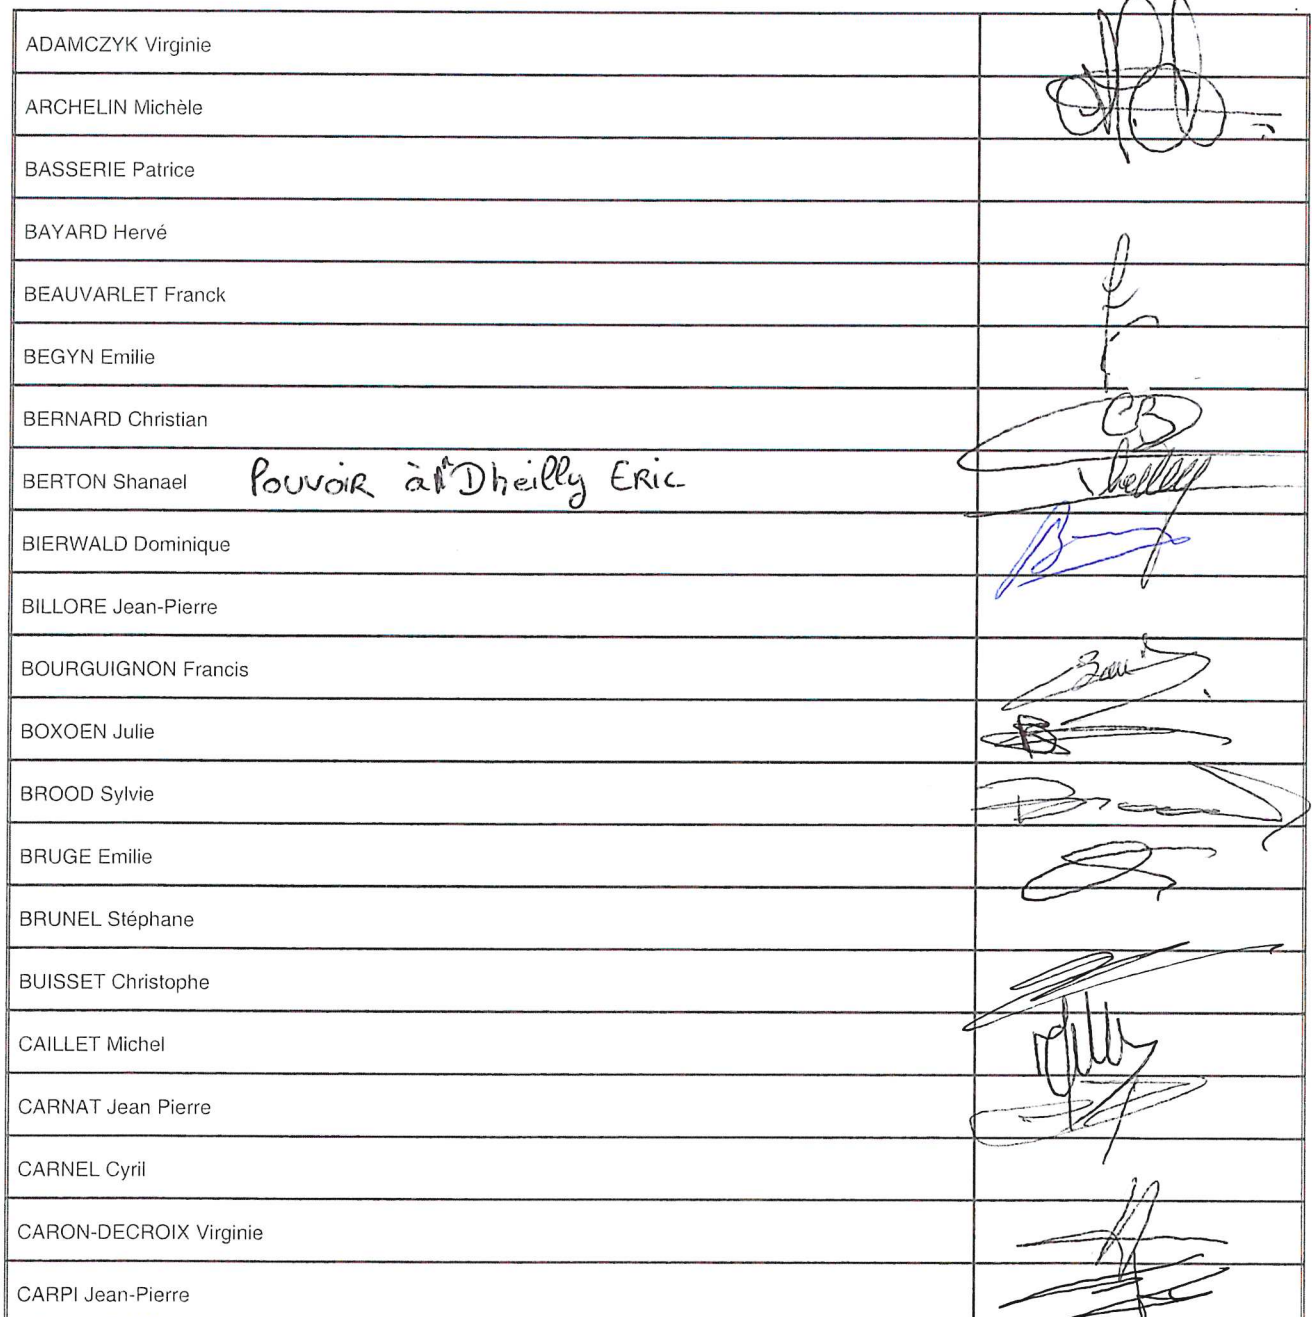 ADAMCZYK Virginie
ARCHELIN Michèle
BASSERIE Patrice
BAYARD Hervé
BEAUVARLET Franck
BEGYN Emilie
BERNARD Christian
CB
BERTON Shanael Pouvoir à Mr Dheilly ERic
Dheilly
BIERWALD Dominique
BILLORE Jean-Pierre
BOURGUIGNON Francis
BOXOEN Julie
BROOD Sylvie
BRUGE Emilie
BRUNEL Stéphane
BUISSET Christophe
CAILLET Michel
CARNAT Jean Pierre
CARNEL Cyril
CARON-DECROIX Virginie
CARPI Jean-Pierre